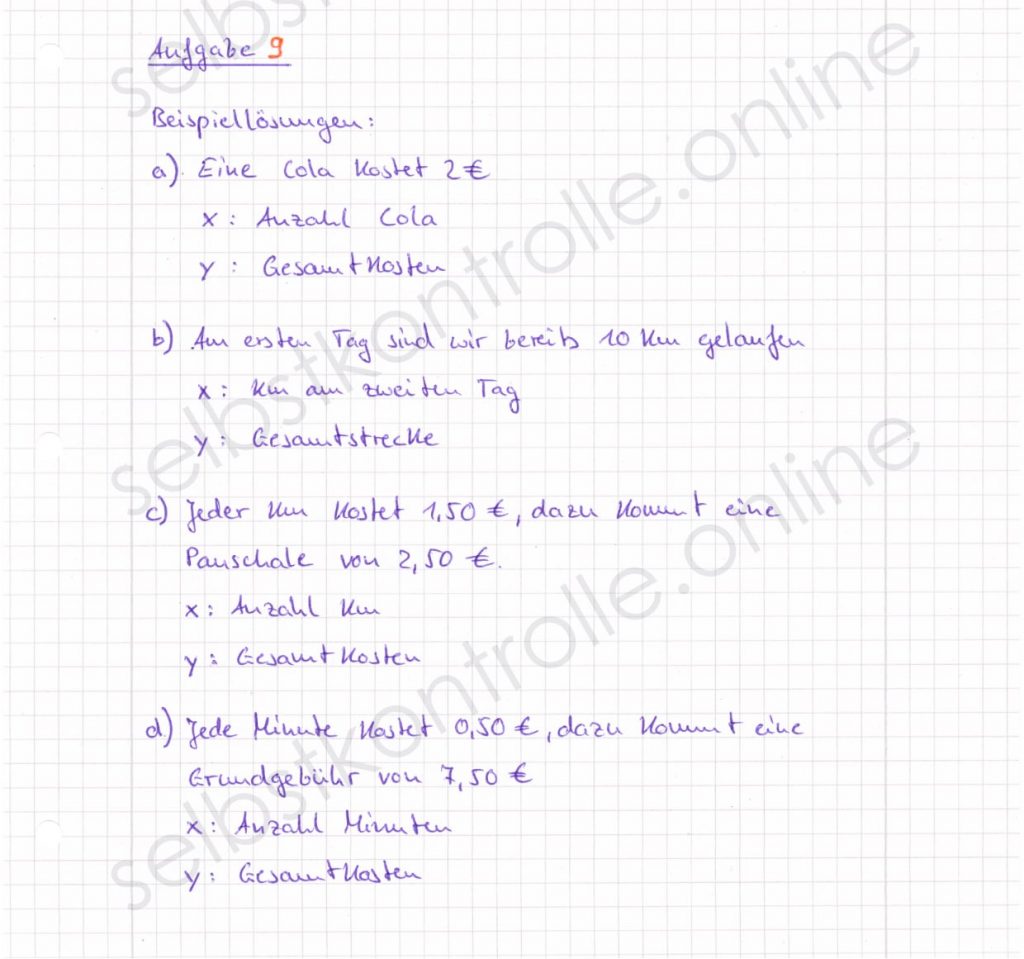 Aufgabe 9
Beispiellösungen:
a) Eine Cola kostet 2 €
x : Anzahl Cola
y : Gesamtkosten
b) Am ersten Tag sind wir bereits 10 km gelaufen
x : km am zweiten Tag
y : Gesamtstrecke
c) Jeder km kostet 1,50 €, dazu kommt eine
Pauschale von 2,50 €.
x : Anzahl km
y : Gesamtkosten
d) Jede Minute kostet 0,50 €, dazu kommt eine
Grundgebühr von 7,50 €
x : Anzahl Minuten
y : Gesamtkosten
selbstkontrolle.online
selbstkontrolle.online